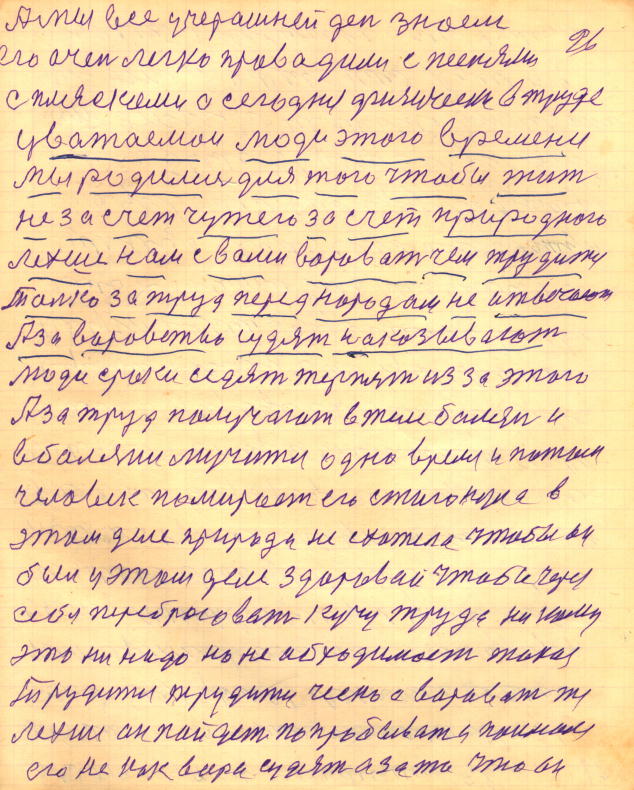 А мы все учерашней ден знаем
26
его очен легко провадили с песнями
с пляскоми а сегодня физически в труде
уважаемои люди этого времени
мы родилися для того чтобы жит
не за счет чужего за счет природного
лехше нам с вами вороват чем трудитися
толко за труд перед народам не отвечают
А за воровство судят наказывают
люди сроки седят терпят из за этого
А за труд получают в теле болезн и
в болезни мучится одно время и потом
человек помирает его стихонула в
этом деле природа не схотела чтобы он
был у этом деле здоровай чтобы через
себя перебросоват кучу труда ни кому
это ни надо но не абходимост такая
Трудится трудится чесно а вороват же
лехше он пойдет попробывать а поимали
его не как вора судят а за то что он